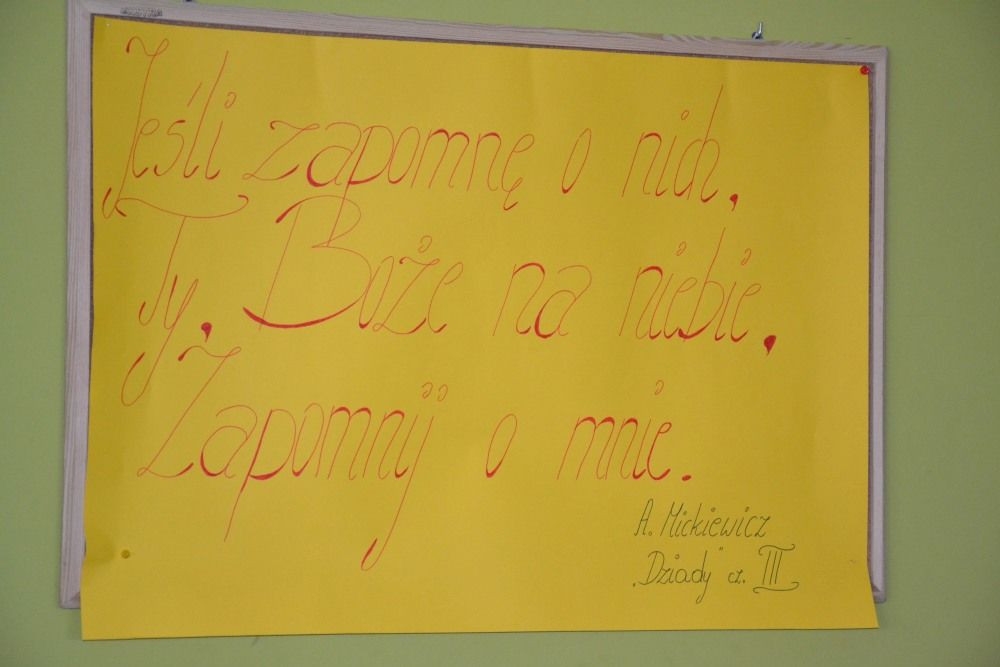 Jeśli zapomnę o nich,
Ty, Boże na niebie,
Zapomnij o mnie.
A. Mickiewicz
„Dziady" cz. III